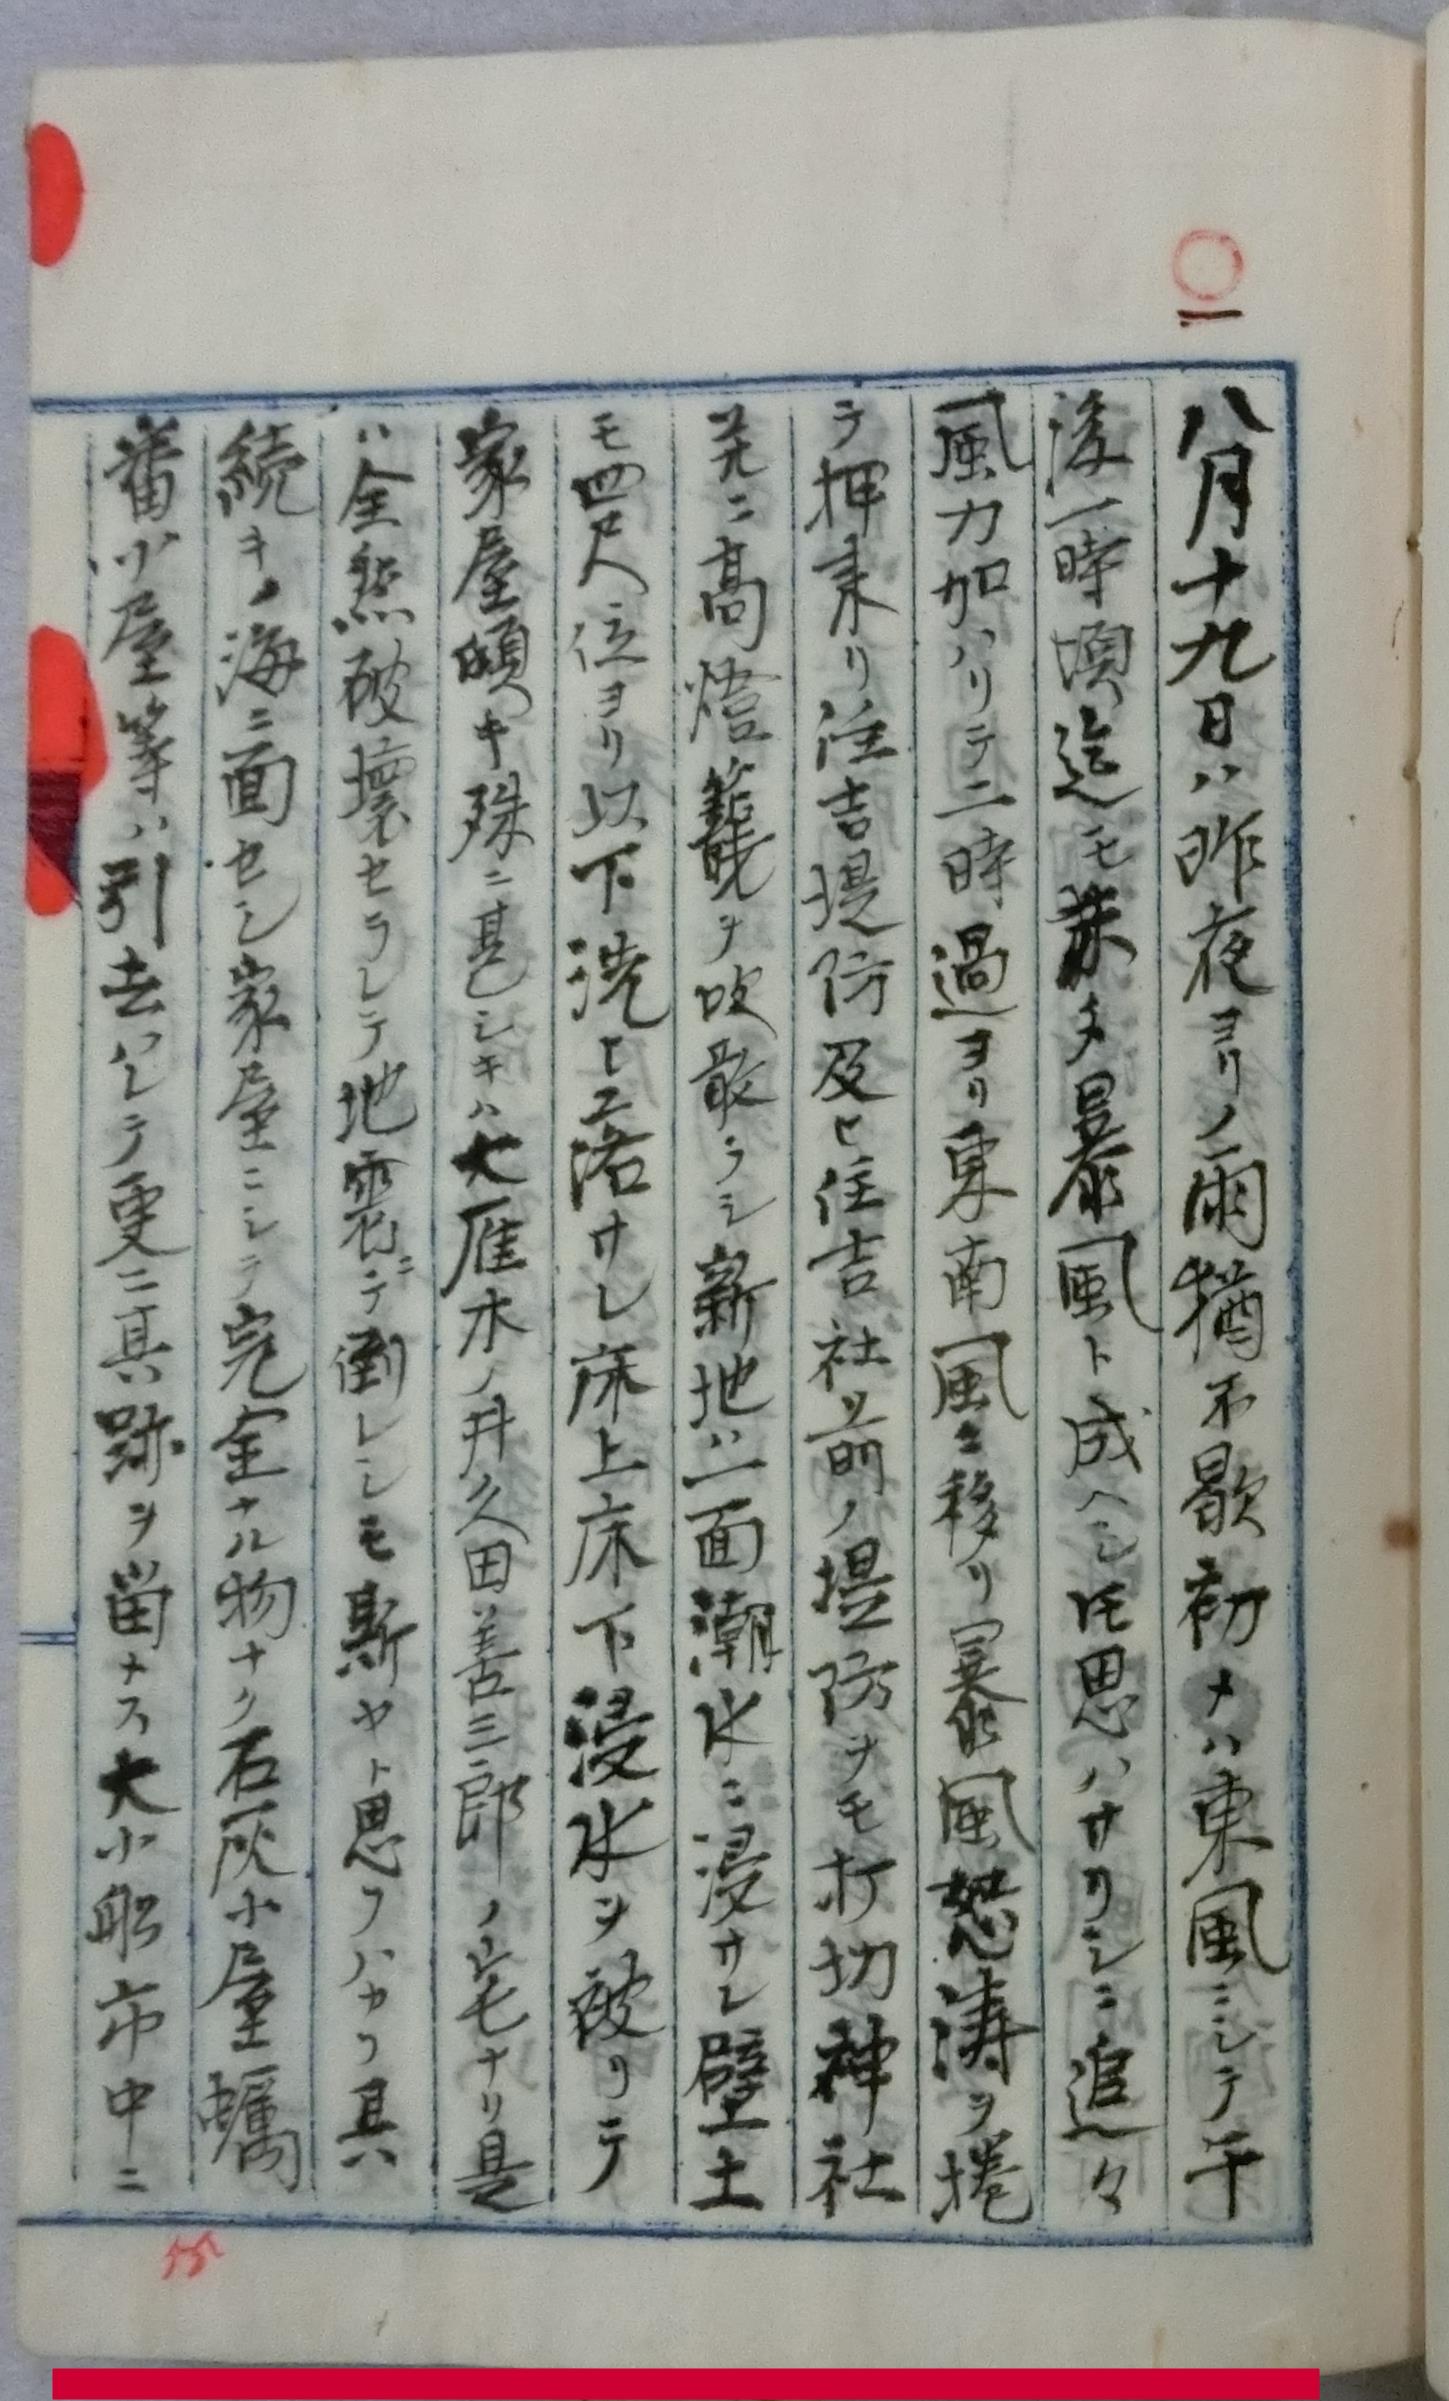 八月十九日ハ昨夜ヨリノ雨猶不歇初メハ東風ニシテ午
後一時頃迄モ未タ暴風ト成ヘシトモ思ハサリシニ追々
風力加ハリテ二時過ヨリ東南風ニ移リ暴風怒涛ヲ捲
テ押来リ住吉堤防及ヒ住吉社前ノ堤防ヲモ打切神社
並ニ高燈籠ヲ吹散ラシ新地ハ一面潮水ニ浸サレ壁土
モ四尺位ヨリ以下洗ヒ落サレ床上床下浸水ヲ被リテ
家屋傾キ殊ニ甚シキハ大雁木ノ井久田善三郎ノ宅ナリ是
ハ全然破壊セラレテ地震ニテ倒レシモ斯ヤト思フハカリ其
続キノ海ニ面セシ家屋ニシテ完全ナル物ナク石灰小屋蠣
番小屋等ハ引去ハレテ更ニ其跡ヲ留ナス大小船市中ニ